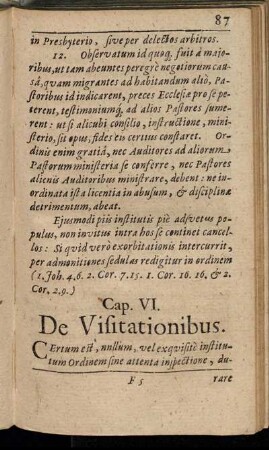 87
in Presbyterio, sive per delectos arbitros.
12. Observatum id quoq; fuit á majo-
ribus, ut tam abeuntes peregrè negotiorum cau-
sâ, quam migrantes ad habitandum aliò, Pa-
storibus id indicarent, preces Ecclesiæ pro se pe-
terent, testimoniumq; ad alios Pastores sume-
rent: ut si alicubi consilio, instructione, mini-
sterio, sit opus, fides eis certius constaret. Or-
dinis enim gratiâ, nec Auditores ad aliorum
Pastorum ministeria se conferre, nec Pastores
alienis Auditoribus ministrare, debent: ne in-
ordinata ista licentia in abusum, & disciplinæ
detrimentum, abeat.
Ejusmodi piis institutis piè adsvetus po-
pulus, non invitus intra hos se continet cancel-
los: Si qvid verò exorbitationis intercurrit,
per admonitiones sedulas redigitur in ordinem
(1. Joh. 4,6. 2. Cor. 7.15. 1. Cor. 16. 16, & 2.
Cor. 2. 9.)
Cap. VI.
De Visitationibus.
CErtum est, nullum, vel exqvisitè institu-
tum Ordinem sine attenta inspectione, du-
F 5 rare